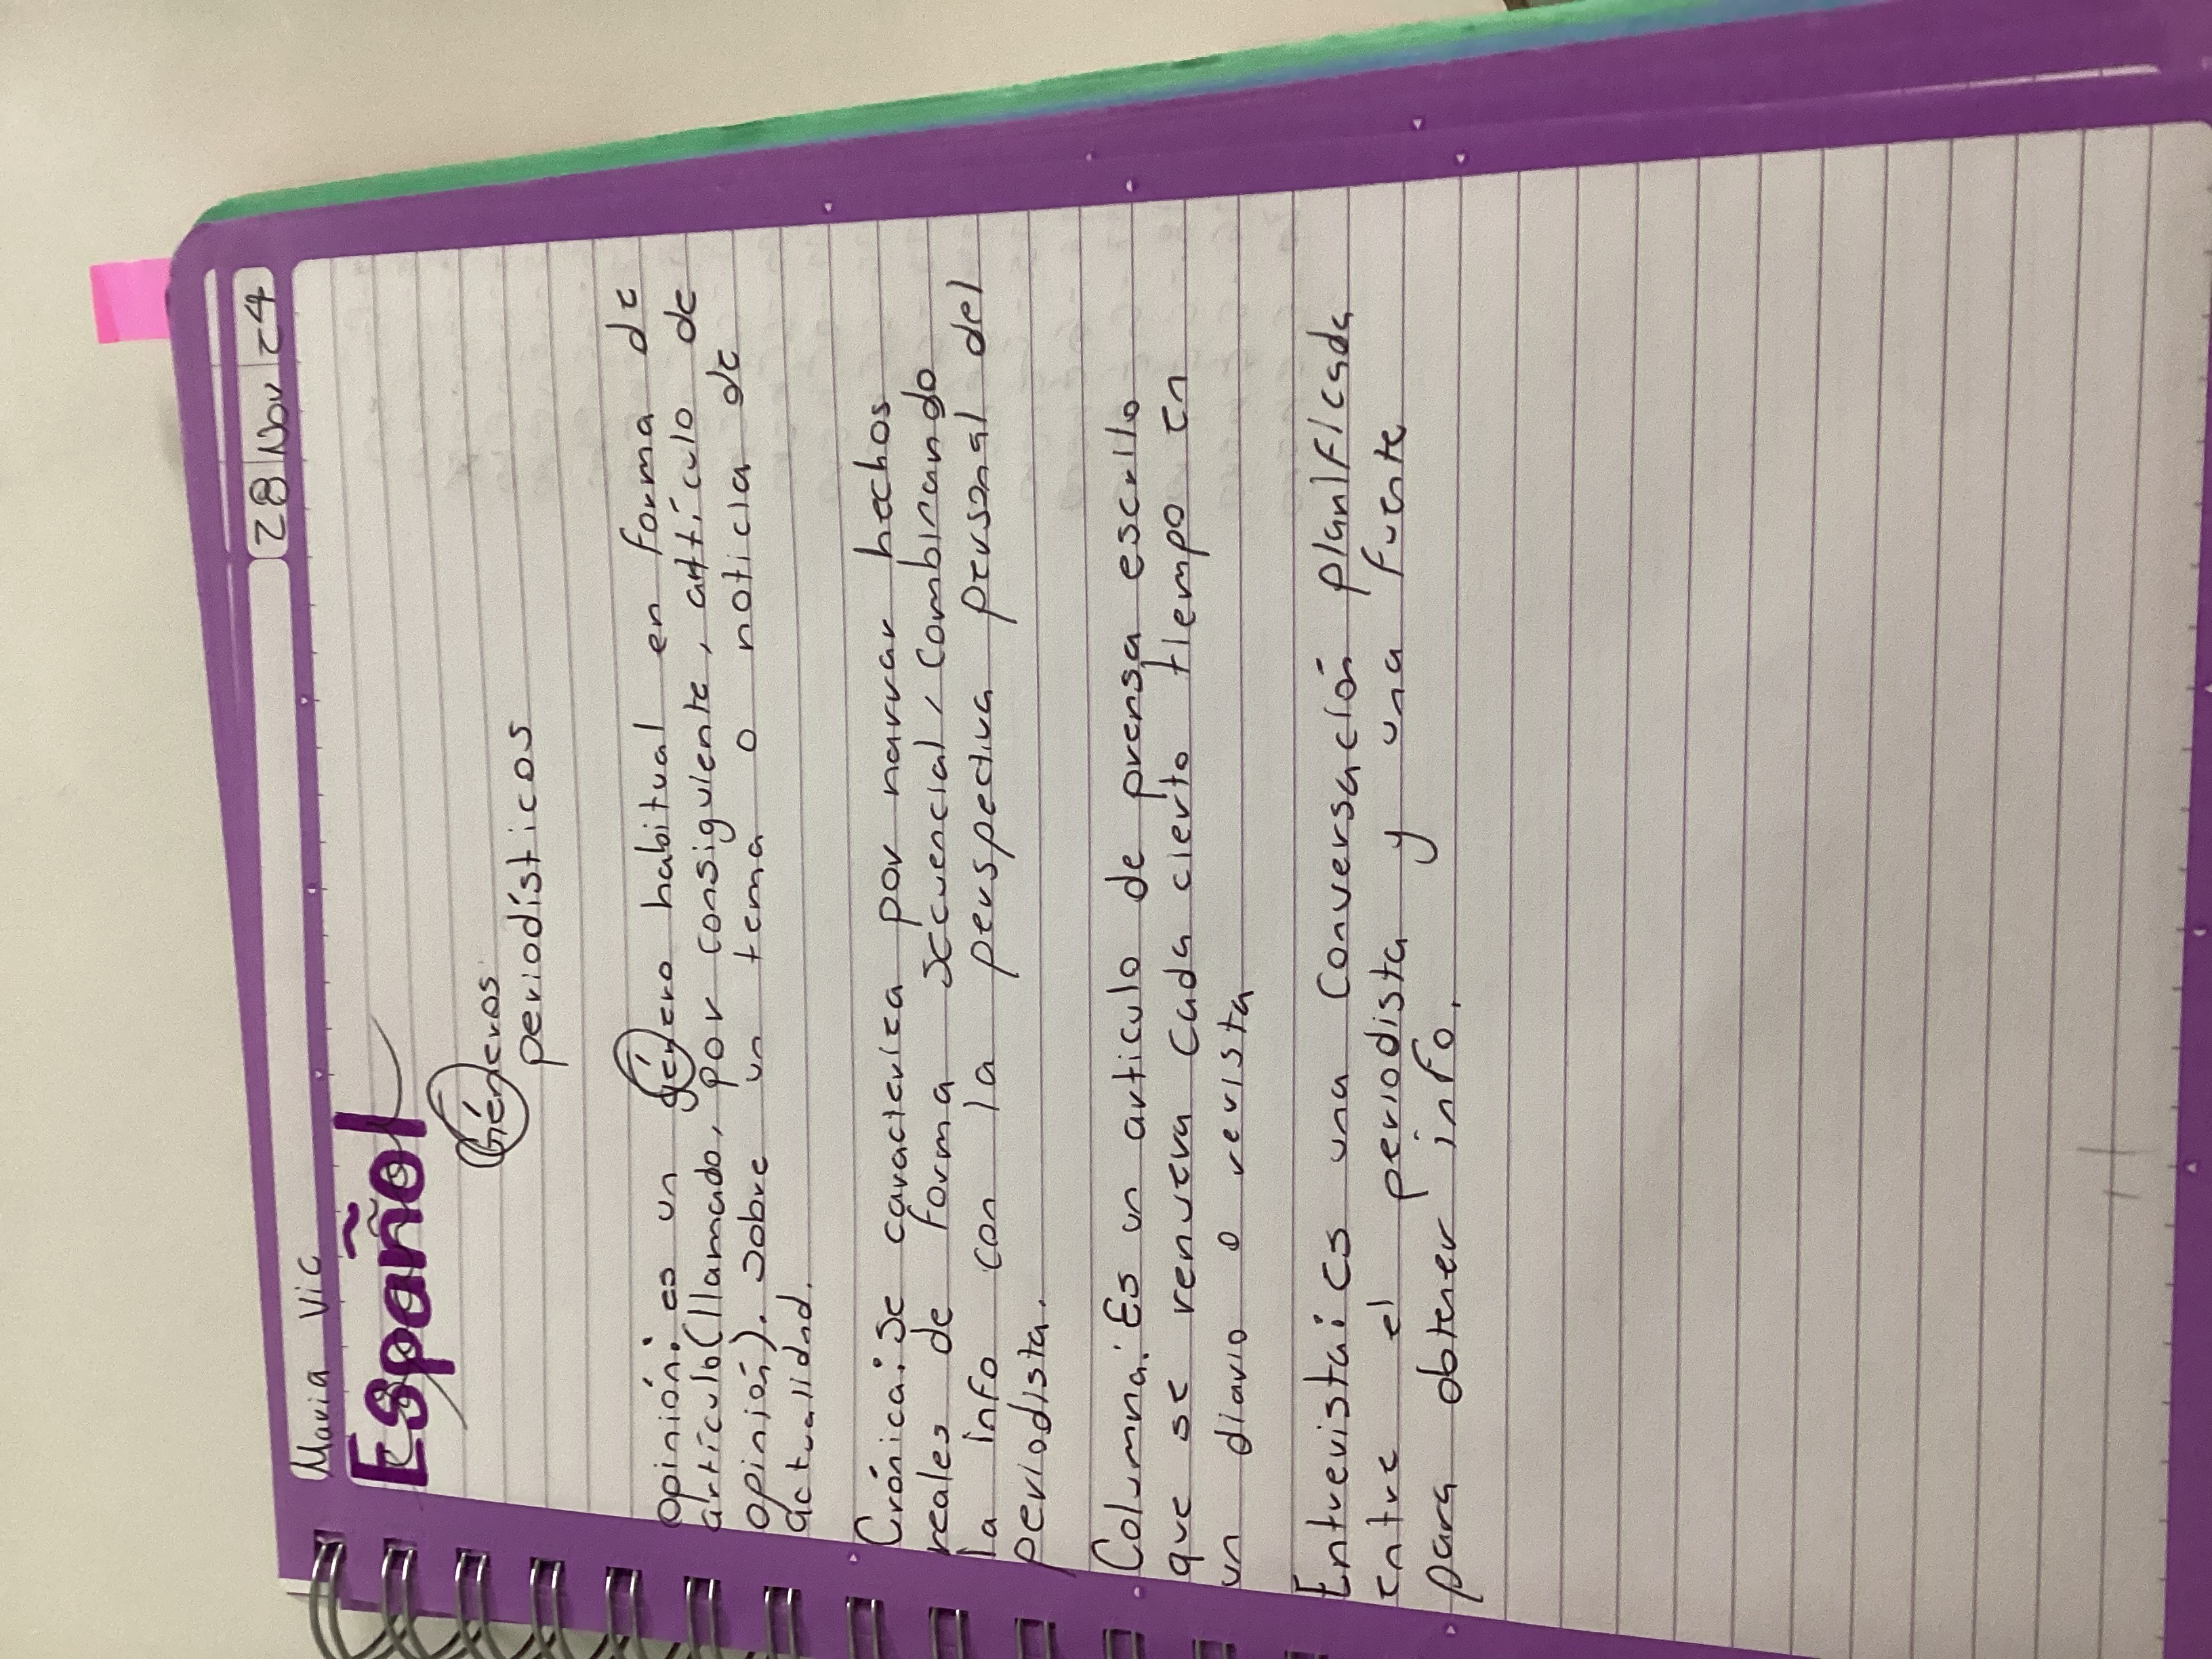 Maria Vic
28 Nov 24
Español
Géneros
periodísticos
Opinión: es un género habitual en forma de
artículo (llamado, por consiguiente, artículo de
opinión). Sobre un tema o noticia de
actualidad.
Crónica: Se caracteriza por narrar hechos
reales de forma secuencial, Combinando
la info con la perspectiva personal del
periodista.
Columna: Es un articulo de prensa escrito
que se renueva cada cierto tiempo en
un diario o revista
Entrevista: es una Conversación planificada
entre el periodista y una fuente
para obtener info.